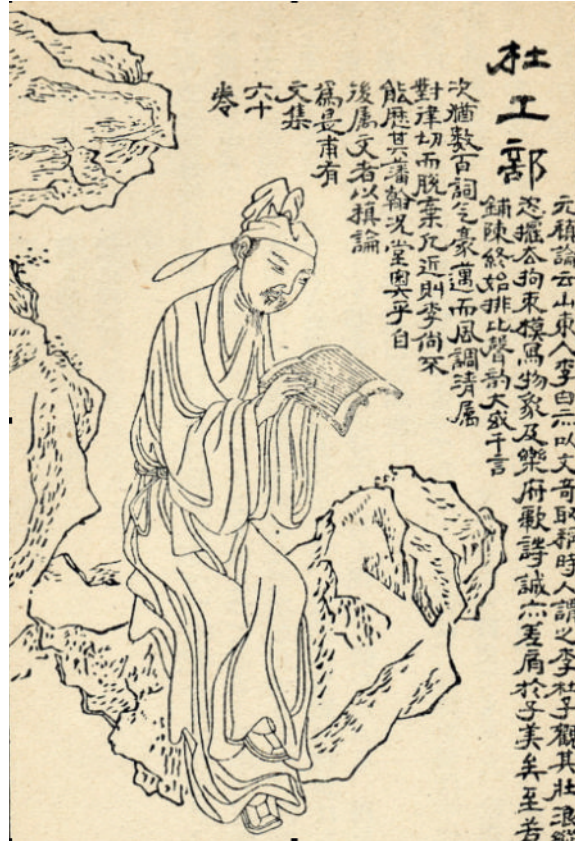 杜工部
元稹論云山東人李白亦以文奇取稱時人謂之李杜予觀其壯浪縱
恣擺去拘束模寫物象及樂府歌詩誠亦差肩於子美矣至若
鋪陳終始排比聲韵大或千言
次猶數百詞气豪邁而風調清属
對律切而脫棄凡近則李尚不
能歷其藩翰況堂奧乎自
後属文者以稹論
爲是甫有
文集
六十
卷